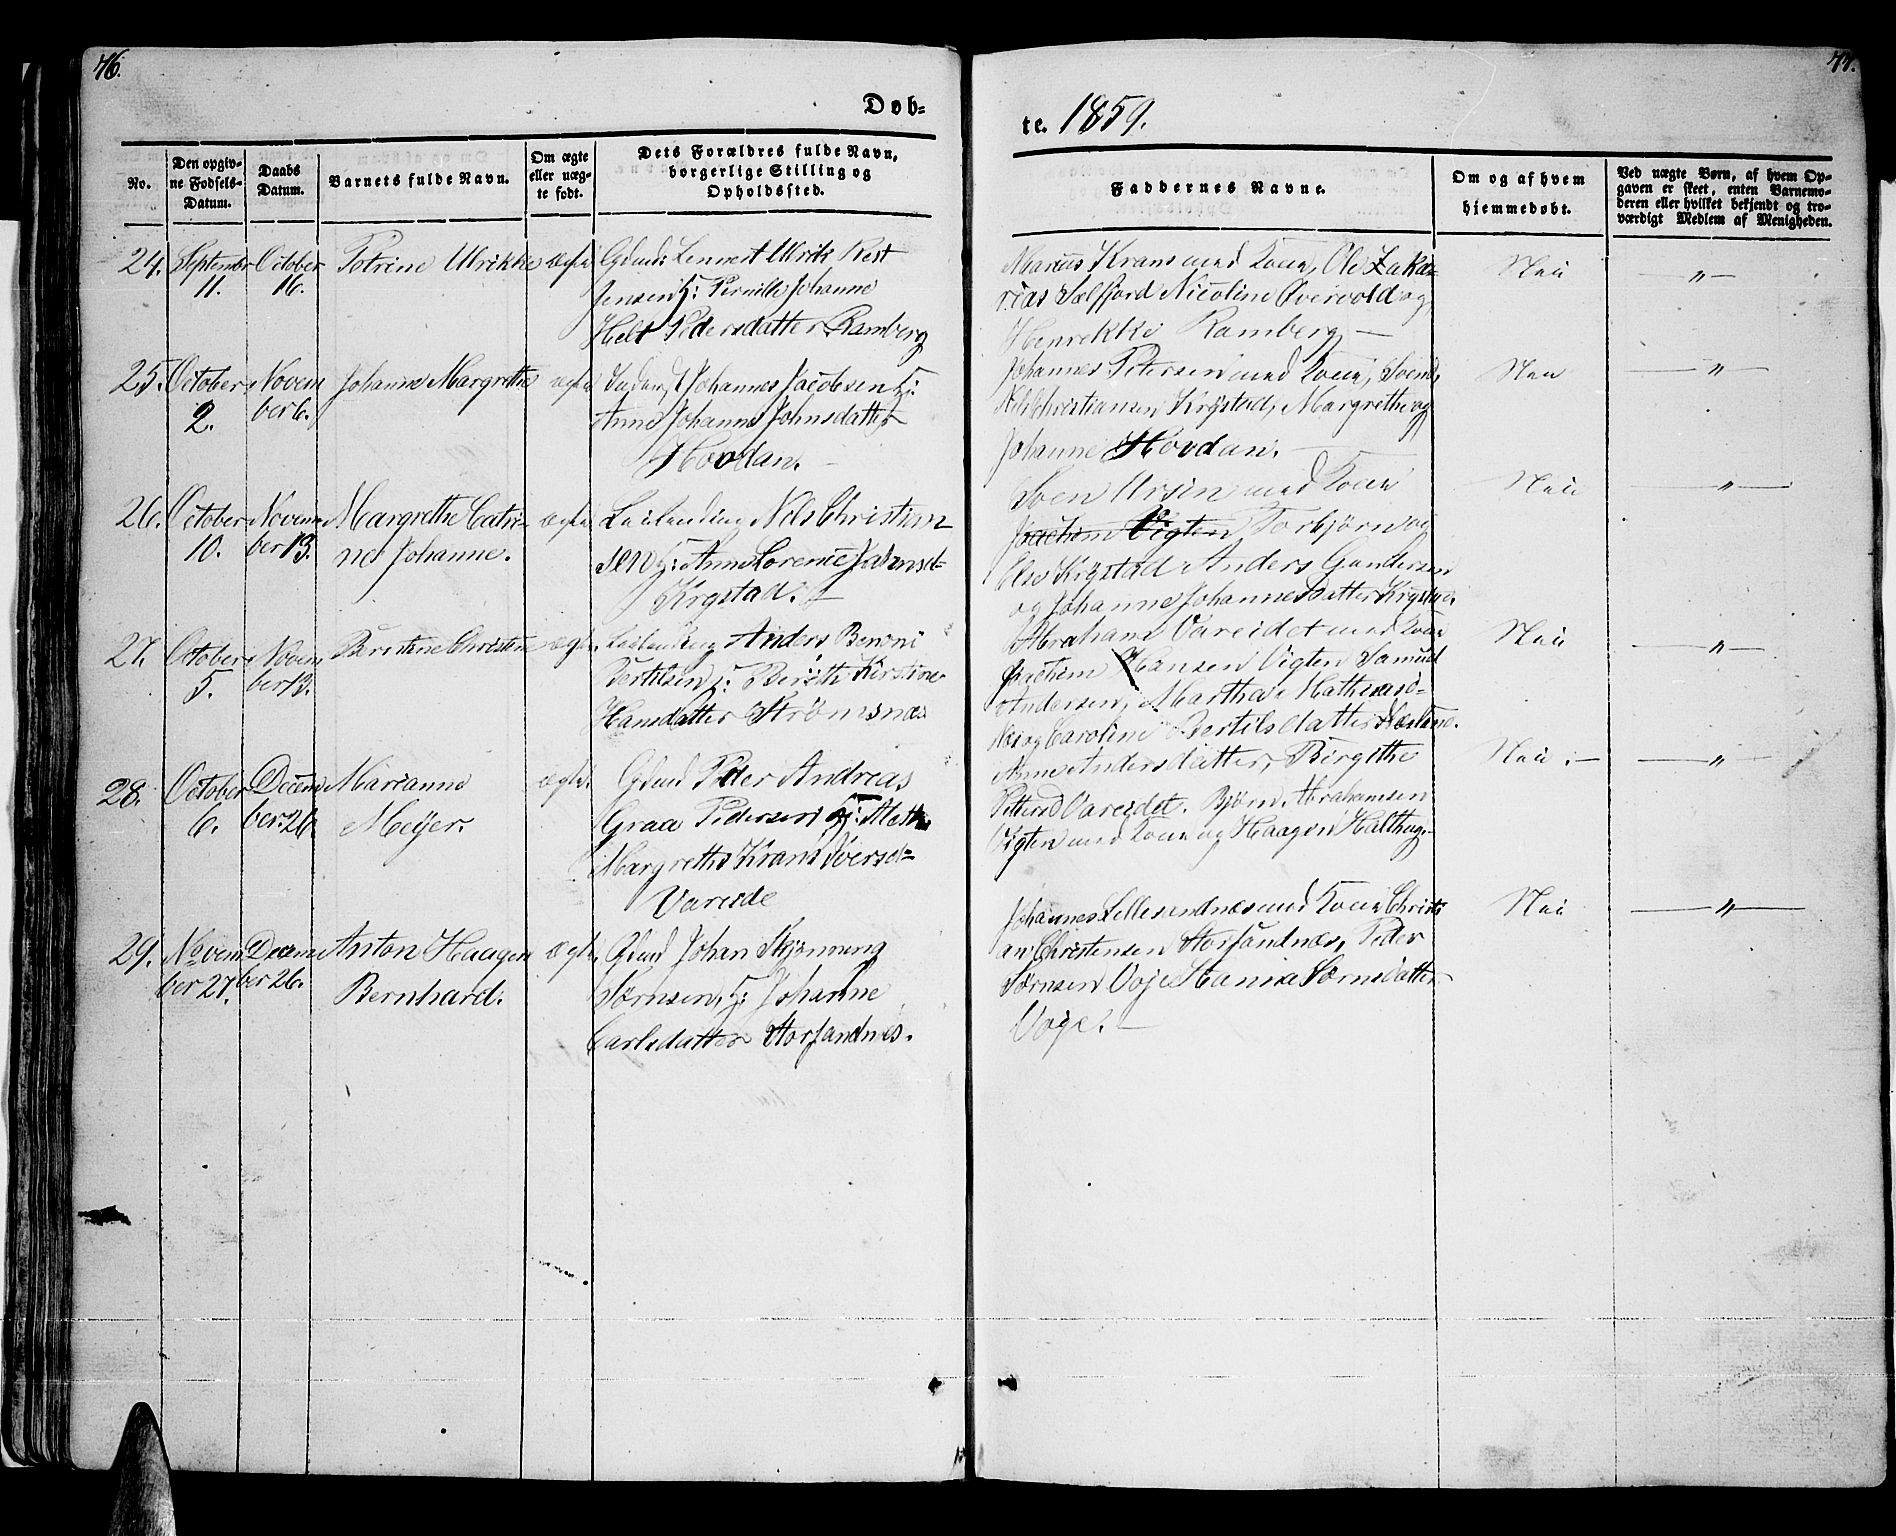 76.
77.
Døb-
te. 1859.
No.
Den opgiv-
ne Fødsels-
Datum.
Daabs
Datum.
Barnets fulde Navn.
Om ægte
eller uæg-
te født.
Dets Forældres fulde Navn,
borgerlige Stilling og
Opholdssted.
Faddernes Navne.
Om og af hvem
hjemmedøbt.
Ved uægte Børn, af hvem Op-
gaven er skeet, enten Barnemo-
deren eller hvilket bekjendt og tro-
værdigt Medlem af Menigheden.
24.
September
11.
October
16.
Petrine Ulrikke
ægte
Gdmd: Lennert Ulrik Rist
Jensen H: Pernille Johanne
Helt Pedersdatter Ramberg
Marius Krans med Kone, Ole Zaka-
rias Sælfjord Nicoline Overvold og
Henrekke Ramberg —
Nei
— " —
25.
October
2.
Novem
ber 6.
Johanne Margrethe
ægte
Johannes Jacobsen H:
Anne Johanne Johnsdatter
Hovdan. —
Johannes Petersen med Kone, Svend,
Christiansen Krystad, Margrethe og
Johanne Hovdan. —
Nei
— " —
26.
October
10.
Novem
ber 13.
Margrethe Catri-
ne Johanne.
ægte
Leilending Nels Christian
sen H: Anne Lorence Johnsd-
Krystad. —
Sven Ursin med Kone
Joachim Vigten Torbjørn og
Else Krystad Anders Gundersen
og Johanne Johannesdatter Krystad.
Nei
— " —
27.
October
5.
Novem
ber 13.
Berntine Christine
ægte.
Leilending Anders Benoni
Bertilsen H: Berith Kirstine
Hansdatter Strømsnæs
Abraham Vareidet med Kone
Joachim Hansen Vigten Samuel
Andersen, Martha Mathiasd-
Næs og Caroline Bertilsdatter
Nei
— " —
28.
October
6.
Decem
ber 26.
Marianne
Meÿer.
ægte.
Gdmd Peder Andreas
Graa Pedersen H: Mette
Margrethe Krans Iversd-
Vareide
Anne Andersdatter, Birgithe
Petters Vareidet. Bjørn Abrahamsen
Vigten med Kone og Haagen Halthug.
Nei. —
— " —
29.
Novem
ber 27.
Decem
ber 26.
Anton Haagen
Bernhard.
ægte.
Gdmd Johan Skjønning
Sørnsen, H: Johanne
Carlsdatter Storsandnes.
Johannes Lillesandnes med Kone Christi
an Christensen Storsandnæs, Peder
Sørnsen Voje Hanna Sørnsdatter
Voje. —
Nei
— " —